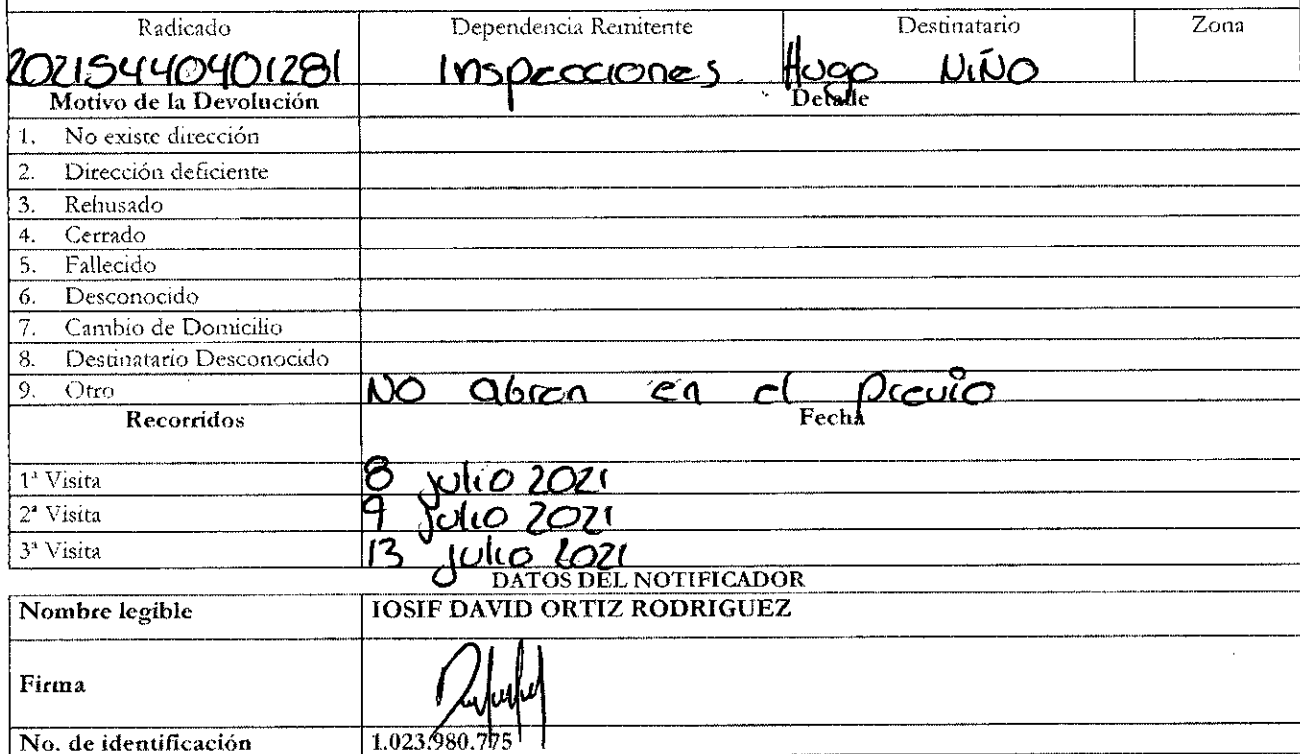 Radicado Dependencia Remitente Destinatario Zona
20215440401281 Inspecciones Hugo NIÑO
Motivo de la Devolución Detalle
1. No existe dirección
2. Dirección deficiente
3. Rehusado
4. Cerrado
5. Fallecido
6. Desconocido
7. Cambio de Domicilio
8. Destinatario Desconocido
9. Otro NO abren en el Previo
Recorridos Fecha
1ª Visita 8 julio 2021
2ª Visita 9 julio 2021
3ª Visita 13 julio 2021
DATOS DEL NOTIFICADOR
Nombre legible IOSIF DAVID ORTIZ RODRIGUEZ
Firma
No. de identificación 1.023.980.775